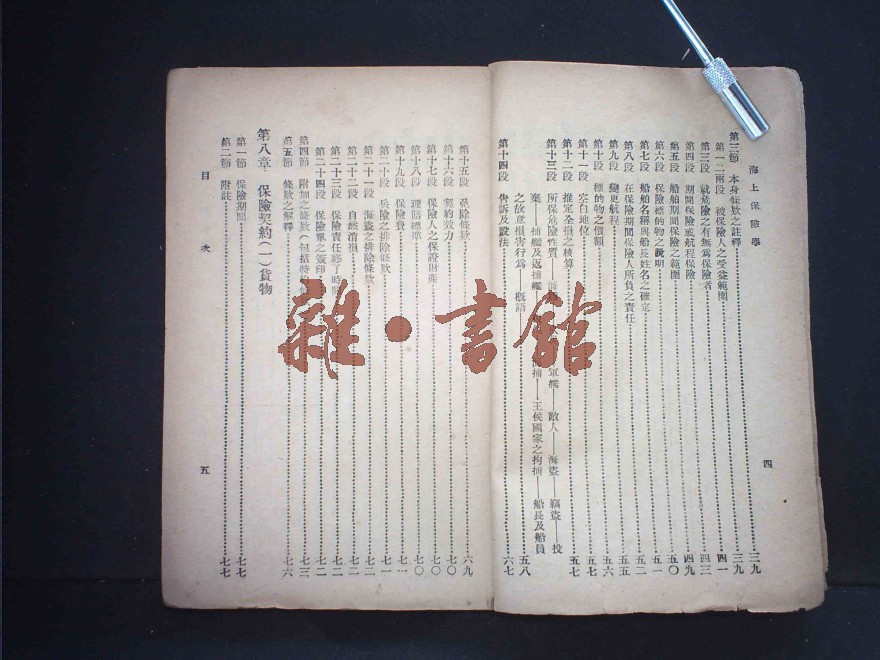 海上保險學
四
第三節 本身條款之註釋 三九
第一二兩段 被保險人之受益範圍 三九
第三段 就危險之有無為保險者 四一
第四段 期間保險或航程保險 四三
第五段 船舶期間保險之範圍 四九
第六段 保險標的物之說明 五〇
第七段 船舶名稱與船長姓名之確定 五一
第八段 在保險期間保險人所負之責任 五二
第九段 變更航程 五五
第十段 標的物之價額 五六
第十一段 空白地位 五七
第十二段 推定全損之核算 五七
第十三段 所保危險性質 軍艦——敵人——海盜 竊盜——投
棄——捕艦及返捕艦 王侯國家之拘捕 船長及船員
之故意損害行為——概語 五八
第十四段 告訴及設法 六七
第十五段 免除條款 六九
第十六段 契約效力 七〇
第十七段 保險人之保證財產 七〇
第十八段 理賠標準 七〇
第十九段 保險費 七一
第二十段 兵險之排除條款 七一
第二十一段 海盜之排除條款 七二
第二十二段 自然消損 七二
第二十三段 保險責任終了時間 七二
第二十四段 保險單之簽印 七二
第四節 附加之條款（包括特約 七三
第五節 條款之解釋 七六
第八章 保險契約（一）貨物
第一節 保險期間 七七
第二節 附註 七七
目次
五
雜·書館